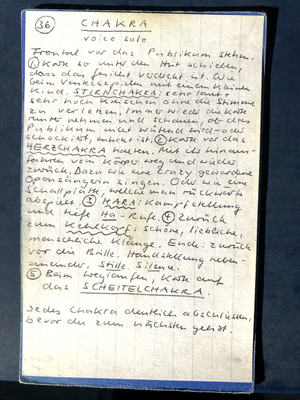 36 CHAKRA
voice solo
Frontal vor das Publikum stehen.
① Karte so unter den Hut schieben,
dass das Gesicht verdeckt ist. Wie
beim Versteckspielen mit einem kleinen
Kind. STIRNCHAKRA: sehr laut +
sehr hoch kreischen ohne die Stimme
zu verletzen, immer wieder die Karte
runter nehmen und schauen, ob das
Publikum nicht wütend wird oder
schockiert, entsetzt ist. ② Karte vor das
HERZCHAKRA halten. Mit ihr hinaus-
fahren vom Körper weg und wieder
zurück. Dazu wie eine crazy gewordene
Opernsängerin singen. Oder wie eine
Schallplatte, welche man rückwärts
abspielt. ③ HARA: Kampfstellung
und tiefe Ha-Rufe. ④ Zurück
zum Kehlkopf: schöne, liebliche,
menschliche Klänge. Ende: zurück
vor die Brille. Handstellung neben-
einander, Stille. Silence.
⑤ Beim Weglaufen, Karte auf
das SCHEITELCHAKRA.
Jedes Chakra deutlich abschliessen,
bevor du zum nächsten gehst.